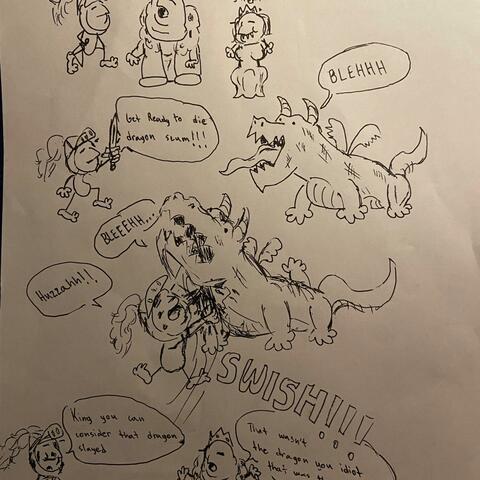 BLEHHH
Get Ready to die
dragon scum!!!
BLEEEHH...
Huzzahh!!
SWISH!!!
King you can
consider that dragon
slayed
That wasn't
the dragon you idiot
that was